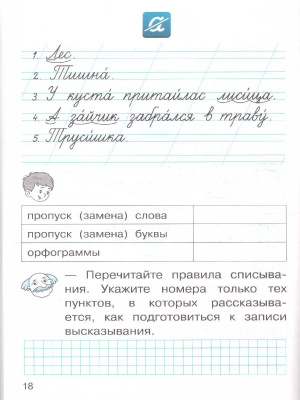 1. Лес.
2. Тишина́.
3. У куста́ притаи́лас лиси́ца.
4. А за́йчик забра́лся в траву́.
5. Труси́шка.
пропуск (замена) слова
пропуск (замена) буквы
орфограммы
— Перечитайте правила списыва-
ния. Укажите номера только тех
пунктов, в которых рассказыва-
ется, как подготовиться к записи
высказывания.
18